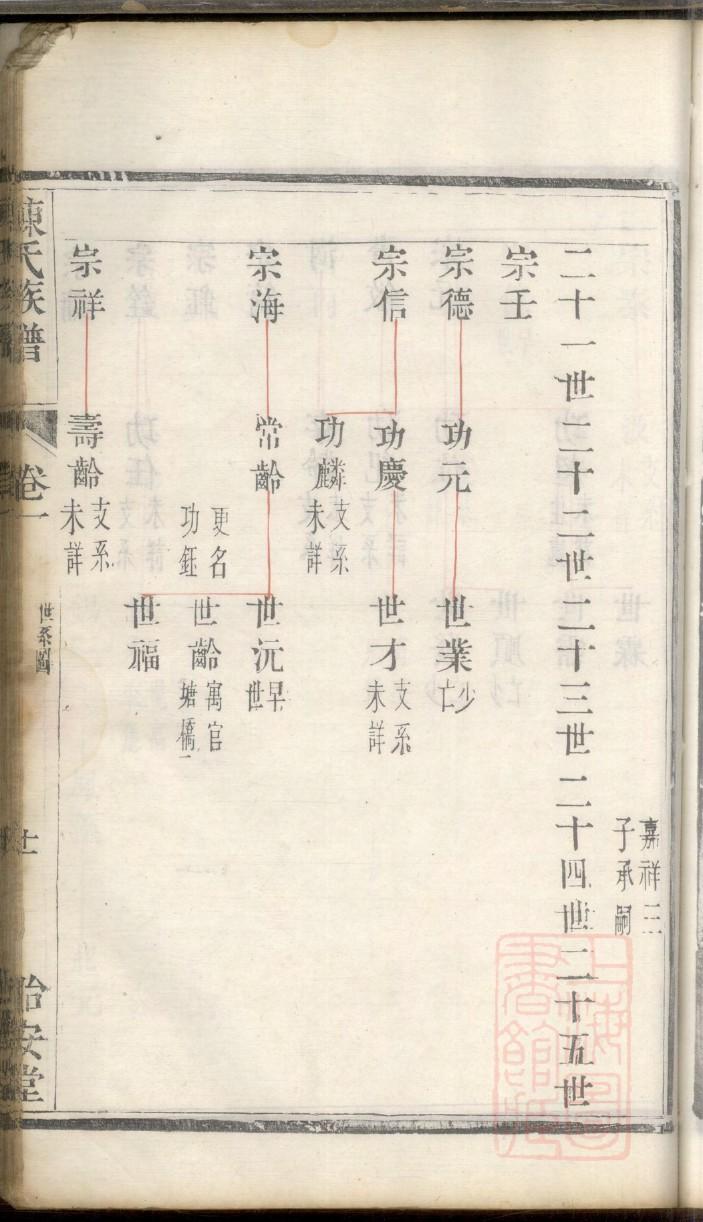 嘉祥三
子承嗣
二十一世二十二世二十三世二十四世二十五世
宗壬
宗德 功元 世業 少亡
宗信 功慶 世才 支系未詳
功麟 支系未詳
宗海 常齡 世沅 早世
更名功鈺 世齡 寓官塘橋
世福
宗祥 壽齡 支系未詳
陳氏族譜 卷一 世系圖 怡安堂
上海圖書館藏